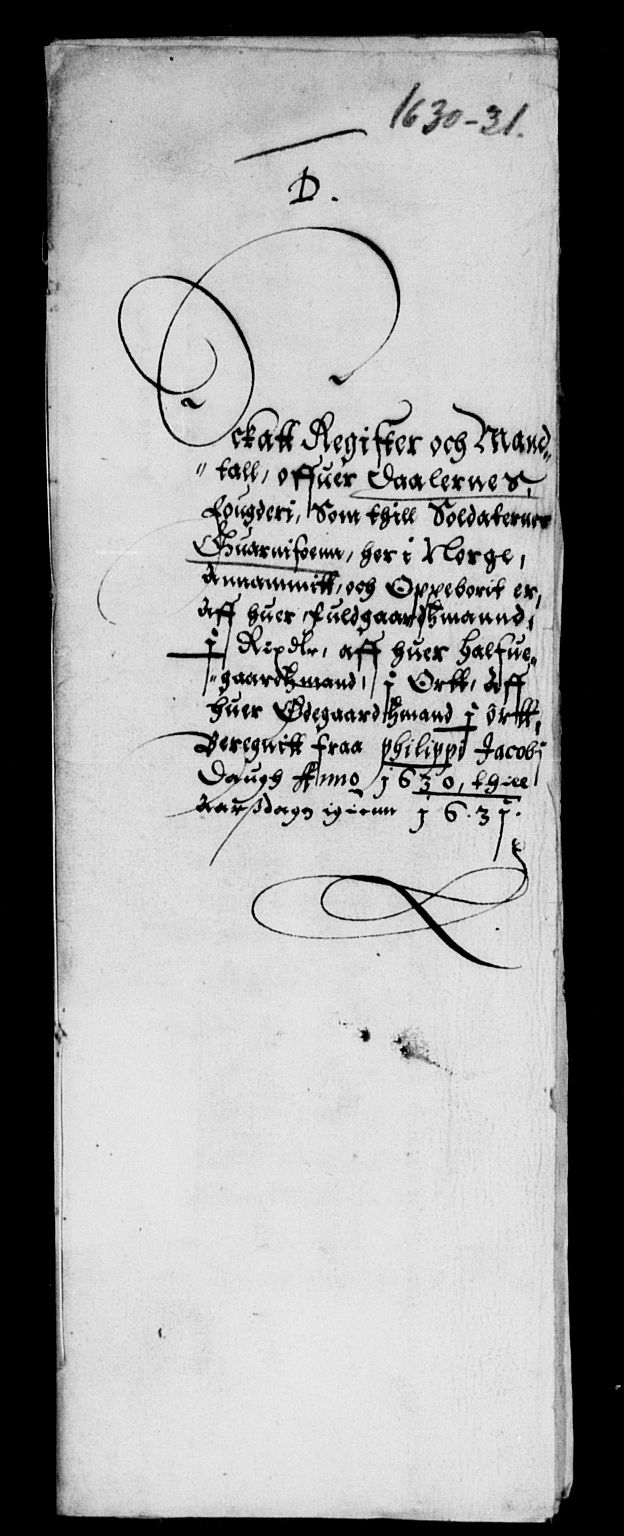 1630-31.
D.
Sckatt Register och Mand-
tall, offuer Daalernes
Fougderi, Som thill Soldaternes
Guarnisoenn, her i Norge,
Annammitt, och Oppeborit er,
Aff huer fuldgaardtzmannd,
j Rixdlr, aff huer halfue-
gaardtzmand, j Ortt, Aff
huer Ødegaardtzmand j Ortt,
Beregnitt fraa philippi Jacobj
Daugh Anno j630, thill
Aarssdagn igienn j6.3j.